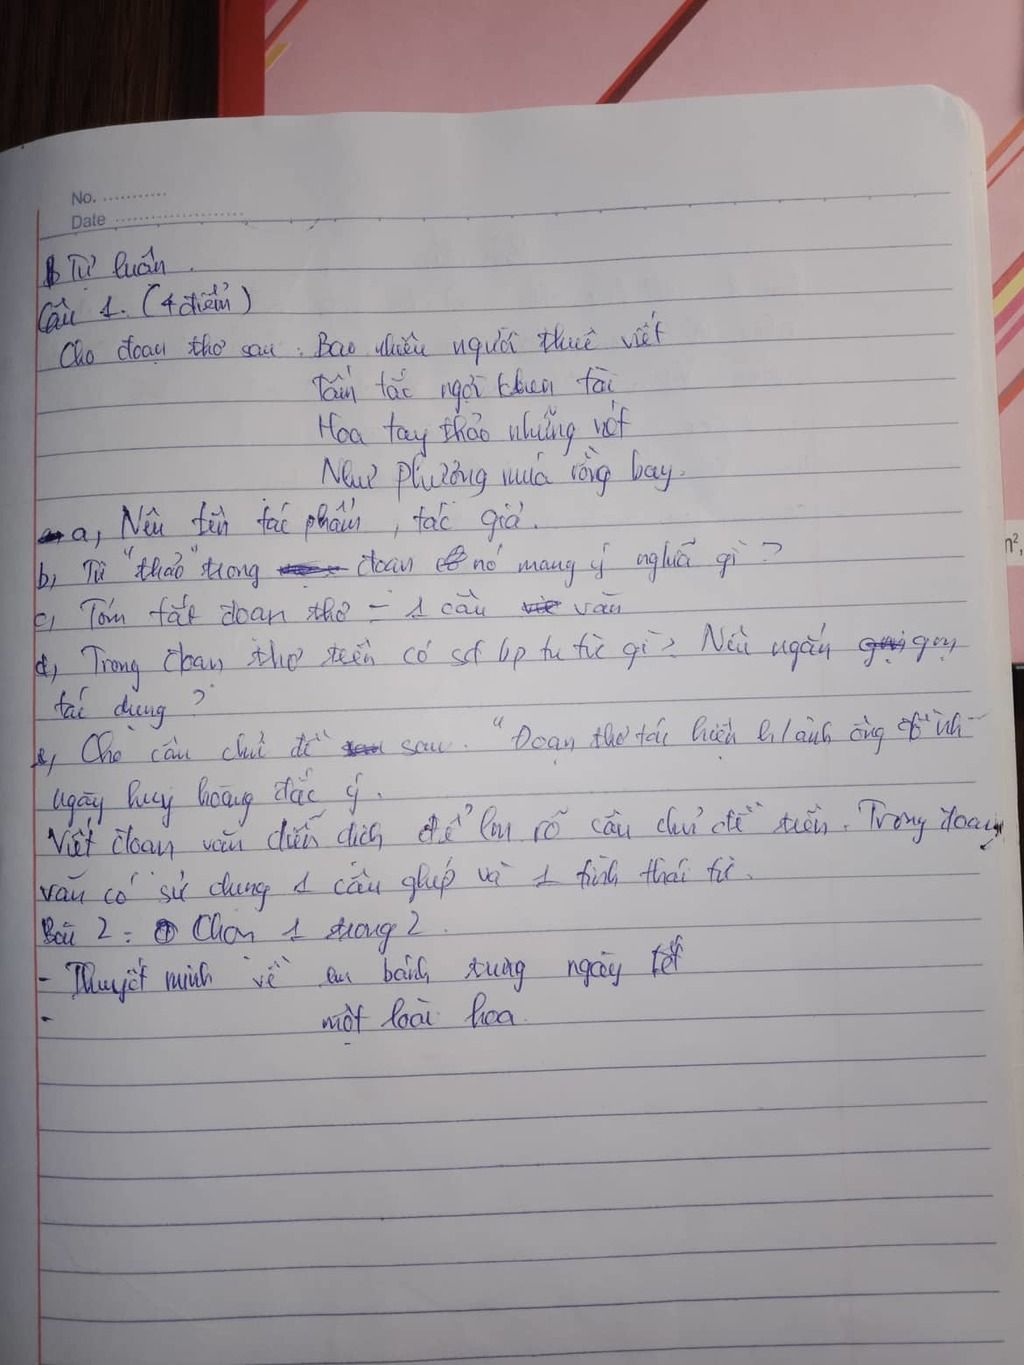 No.
Date
B Tự luận.
Câu 1. (4 điểm)
Cho đoạn thơ sau: Bao nhiêu người thuê viết
Tấm tắc ngợi khen tài
Hoa tay thảo những nét
Như phượng múa rồng bay.
a, Nêu tên tác phẩm, tác giả.
b, Từ "thảo" trong đoạn nó mang ý nghĩa gì?
c, Tóm tắt đoạn thơ = 1 câu văn
d, Trong đoạn thơ trên có sd bp tu từ gì? Nêu ngắn gọn
tác dụng?
e, Cho câu chủ đề sau. "Đoạn thơ tái hiện h/ảnh ông đồ
ngày huy hoàng đắc ý.
Viết đoạn văn diễn dịch để làm rõ câu chủ đề trên. Trong đoạn
văn có sử dụng 1 câu ghép và 1 tình thái từ.
Bài 2: Chọn 1 trong 2.
- Thuyết minh về bánh trưng ngày tết
- một loài hoa.
n²,